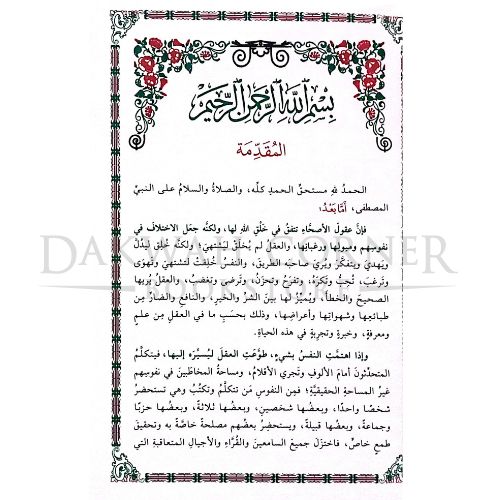 بِسْمِ اللَّهِ الرَّحْمَنِ الرَّحِيمِ
المُقَدِّمَة
الحمدُ للهِ مستحقِّ الحمدِ كلِّه، والصلاةُ والسلامُ على النبيِّ
المصطفى، أمَّا بَعْدُ؛
فإنَّ عقولَ الأصحَّاءِ تتفقُ في خَلْقِ اللهِ لها، ولكنَّه جعَل الاختلافَ في
نفوسِهم وميولِها ورغباتِها، والعقلُ لم يُخلَقْ ليَشتهيَ؛ ولكنَّه خُلِق ليَدُلَّ
ويَهديَ ويتفكَّرَ ويُرِيَ صاحبَه الطريقَ، والنفسُ خُلِقتْ لتَشتهيَ وتَهوَى
وتَرغَبَ، تُحِبُّ وتَكرَهُ، وتفرَحُ وتحزَنُ، وتَرضى وتغضبُ، والعقلُ يُرِيها
الصحيحَ والخطأَ، ويُميِّزُ لها بينَ الشرِّ والخيرِ، والنافعِ والضارِّ مِن
طبائعِها وشهواتِها وأعراضِها، وذلك بحسَبِ ما في العقلِ مِن علمٍ
ومعرفةٍ، وخبرةٍ وتجربةٍ في هذه الحياةِ.
وإذا اهتمَّتِ النفسُ بشيءٍ، طوَّعَتِ العقلَ ليُسيِّرَه إليها، فيتكلَّمُ
المتحدِّثونَ أمامَ الألوفِ وتَجري الأقلامُ، ومساحةُ المخاطَبينَ في نفوسِهم
غيرُ المساحةِ الحقيقيَّةِ؛ فمِن النفوسِ مَن تتكلَّمُ وتكتُبُ وهي تستحضرُ
شخصًا واحدًا، وبعضُها شخصينِ، وبعضُها ثلاثةً، وبعضُها حزبًا
وجماعةً، وبعضُها قبيلةً، ويستحضِرُ بعضُهم مصلحةً خاصَّةً به وتحقيقَ
طمعٍ خاصٍّ، فاختزَلَ جميعَ السامعينَ والقُرَّاءِ والأجيالِ المتعاقبةِ التي
DAKWAH CORNER
BOOKSTORE